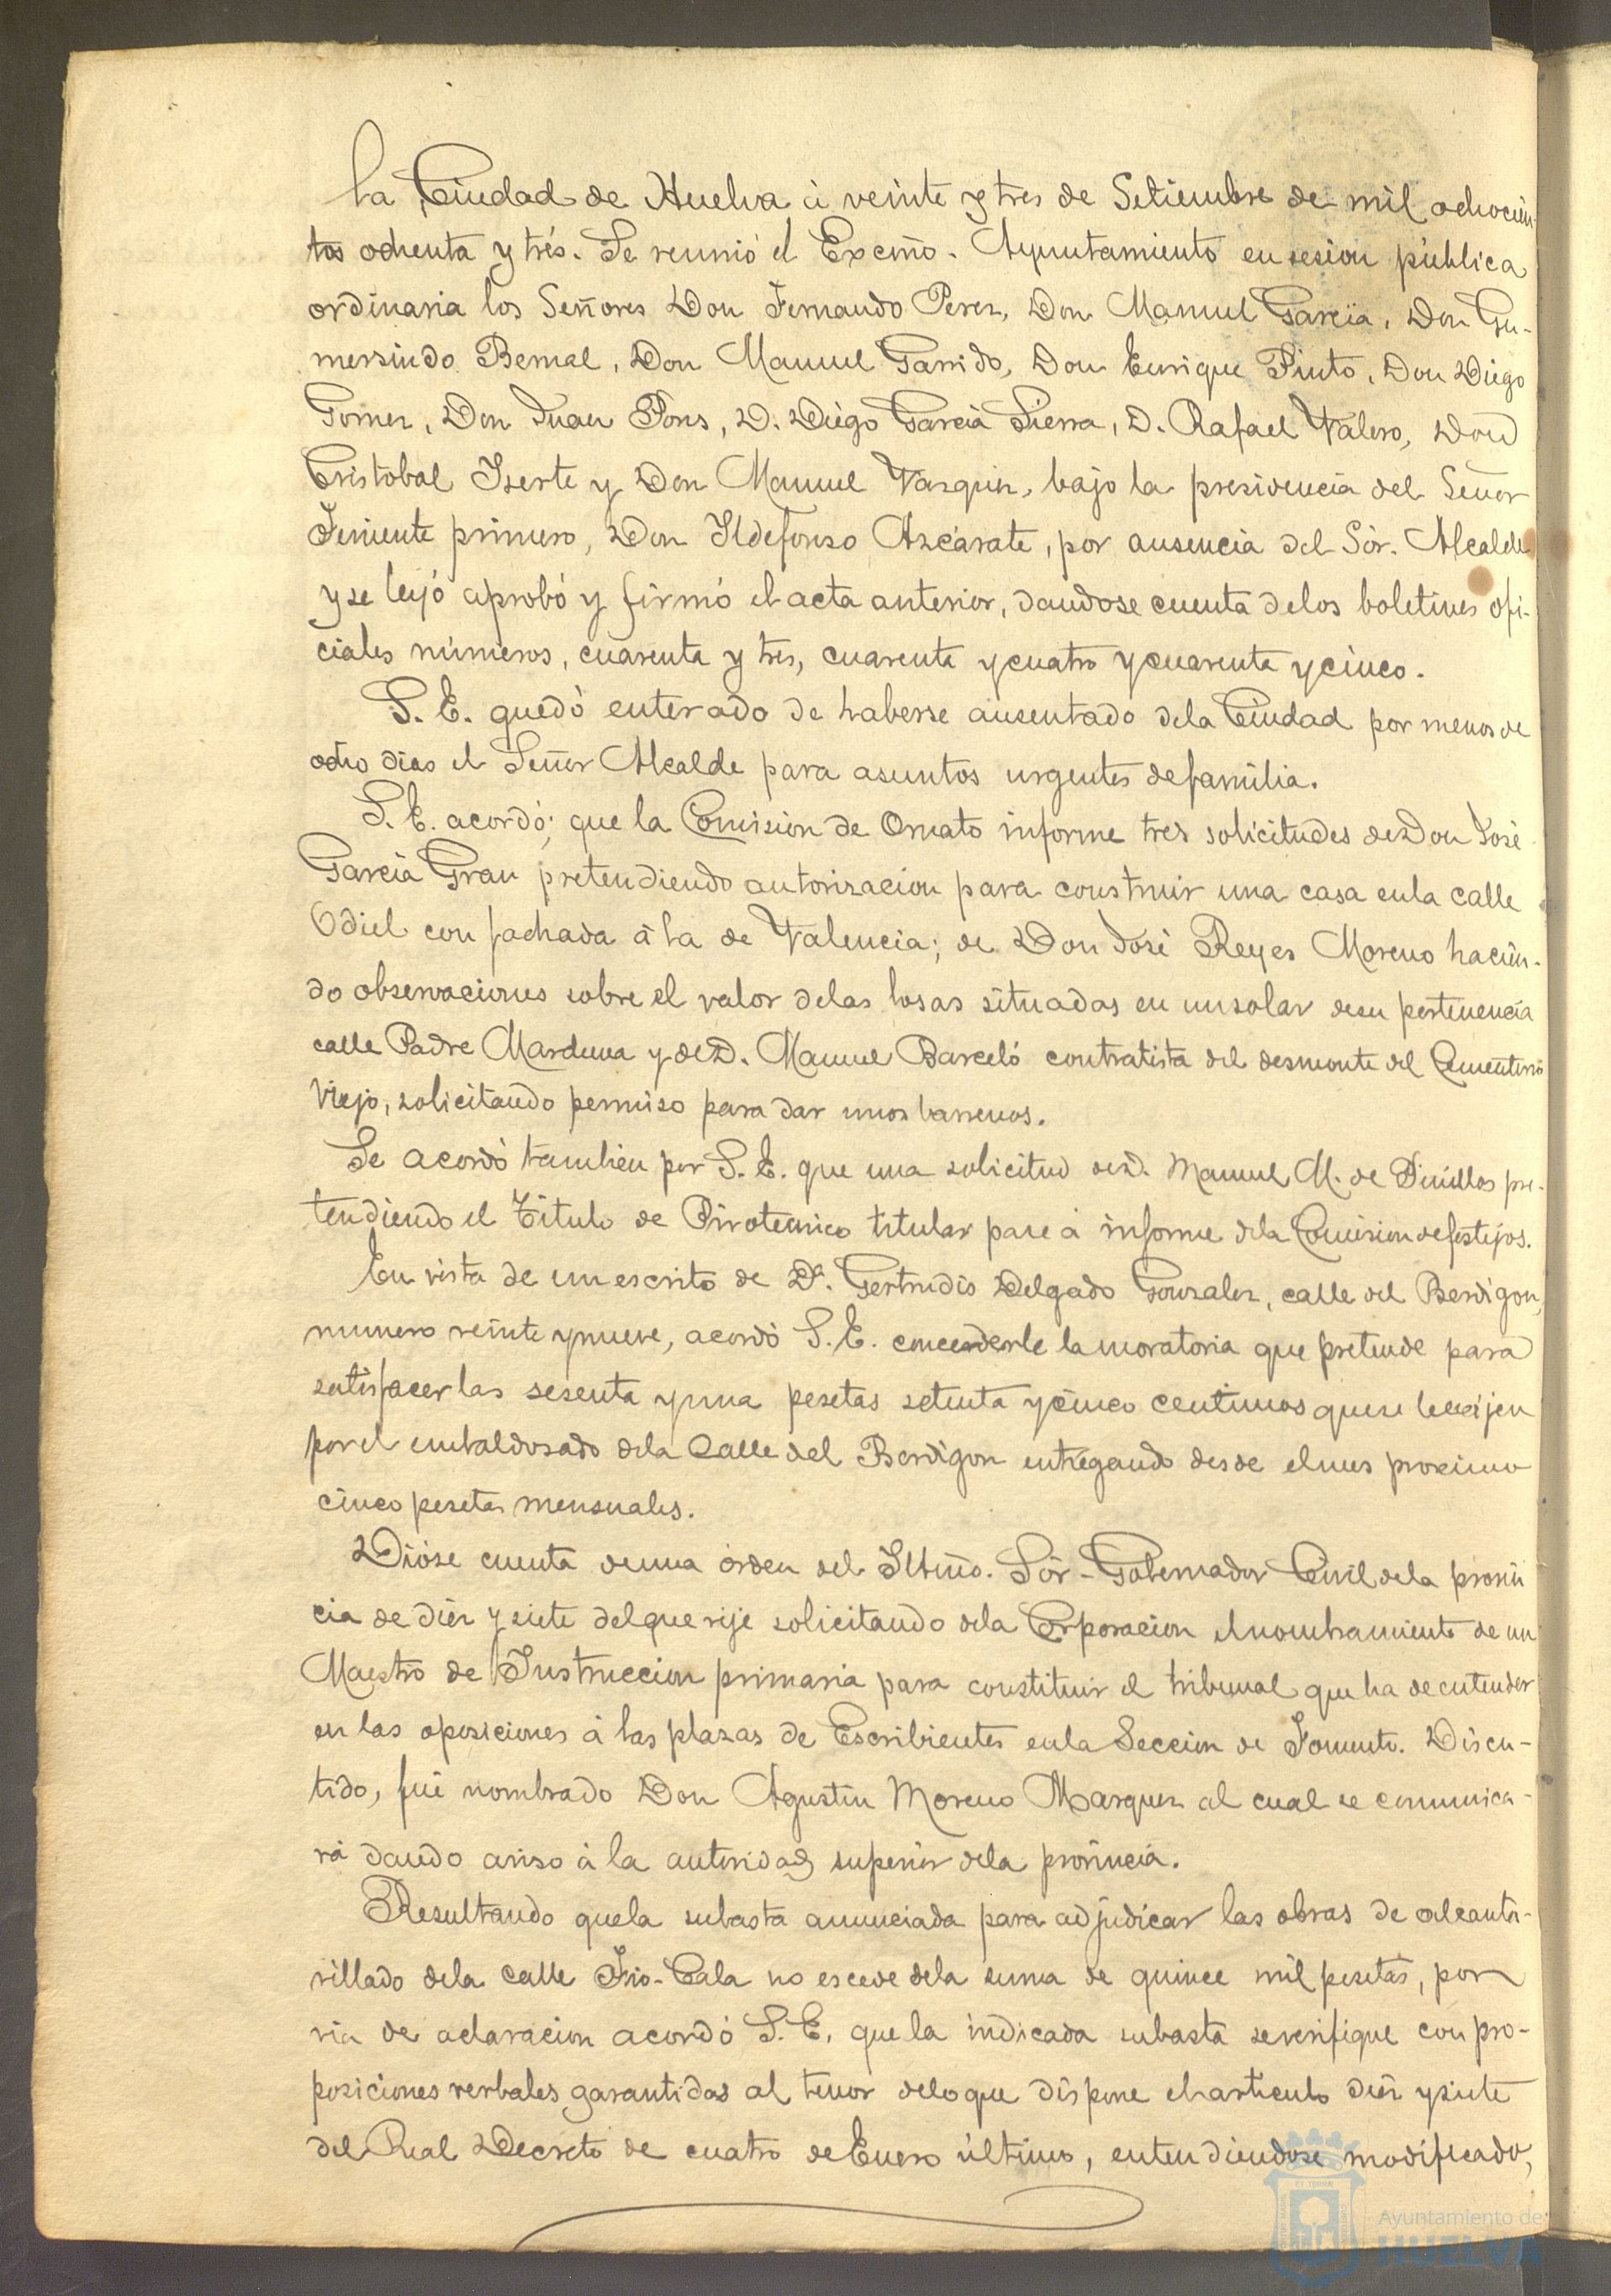 la Ciudad de Huelva á veinte y tres de Setiembre de mil ochocien-
tos ochenta y trés. Se reunió el Excmo. Ayuntamiento en sesion pública
ordinaria los Señores Don Fernando Perez, Don Manuel García, Don Gu-
mersindo Bernal, Don Manuel Garrido, Don Enrique Pinto, Don Diego
Gomez, Don Juan Pons, D. Diego García Sierra, D. Rafael Valero, Don
Cristobal Iserte y Don Manuel Vazquez, bajo la presidencia del Señor
Teniente primero, Don Ildefonso Azcárate, por ausencia del Sór. Alcalde
y se leyó aprobó y firmó el acta anterior, dandose cuenta delos boletines ofi-
ciales números, cuarenta y tres, cuarenta y cuatro y cuarenta y cinco.
S. E. quedó enterado de haberse ausentado dela Ciudad por menos de
ocho dias el Señor Alcalde para asuntos urgentes de familia.
S. E. acordó; que la Comision de Ornato informe tres solicitudes de Don José
García Grau pretendiendo autorizacion para construir una casa enla calle
Odiel con fachada á la de Valencia; de Don José Reyes Moreno hacien-
do observaciones sobre el valor delas losas situadas en un solar desu pertenencia
calle Padre Marchena y de D. Manuel Barceló contratista del desmonte del Cementerio
Viejo, solicitando permiso para dar unos barrenos.
Se acordó tambien por S. E. que una solicitud de D. Manuel M. de Pinillos pre-
tendiendo el Título de Pirotecnico titular pase á informe dela Comision de festejos.
En vista de un escrito de Dª. Gertrudis Delgado Gonzalez, calle del Berdigon,
numero veinte y nueve, acordó S. E. concederle la moratoria que pretende para
satisfacer las sesenta y una pesetas setenta y cinco centimos que se le exijen
por el embaldosado dela Calle del Berdigon entregando desde el mes proximo
cinco pesetas mensuales.
Dióse cuenta de una órden del Iltmo. Sór. Gobernador Civil dela provin
cia de diez y siete del que rije solicitando dela Corporacion el nombramiento de un
Maestro de Instruccion primaria para constituir el tribunal que ha de entender
en las oposiciones á las plazas de Escribientes enla Seccion de Fomento. Discu-
tido, fué nombrado Don Agustin Moreno Marquez al cual se comunica-
rá dando aviso á la autoridad superior dela provincia.
Resultando quela subasta anunciada para adjudicar las obras de alcanta-
rillado dela calle Frio-Cala no escede dela suma de quince mil pesetas, por
via de aclaracion acordó S. E. que la indicada subasta se verifique con pro-
posiciones verbales garantidas al tenor delo que dispone el articulo diez y siete
del Real Decreto de cuatro de Enero último, entendiendose modificado,
Ayuntamiento de
HUELVA